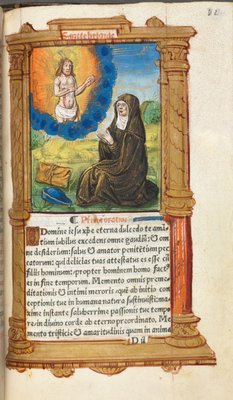 Saincte brigide
Prima oratio
Domine iesu xp̃e eterna dulcedo te amã
tium iubilus excedens omne gaudiũ: et om
ne desiderium: salus et amator penitẽtium pec
catorum: qui delicias tuas attestatus es esse cũ
filiis hominum: propter hominem homo fact⁹
es in fine temporum. Memento omnis preme
ditationis et intimi meroris quẽ ab initio con
ceptionis tue in humana natura sustinuisti: ma
xime instante saluberrime passionis tue tempo
re: in diuino corde ab eterno preordinato. Me
mento tristicie et amaritudinis quam in anima
D ii